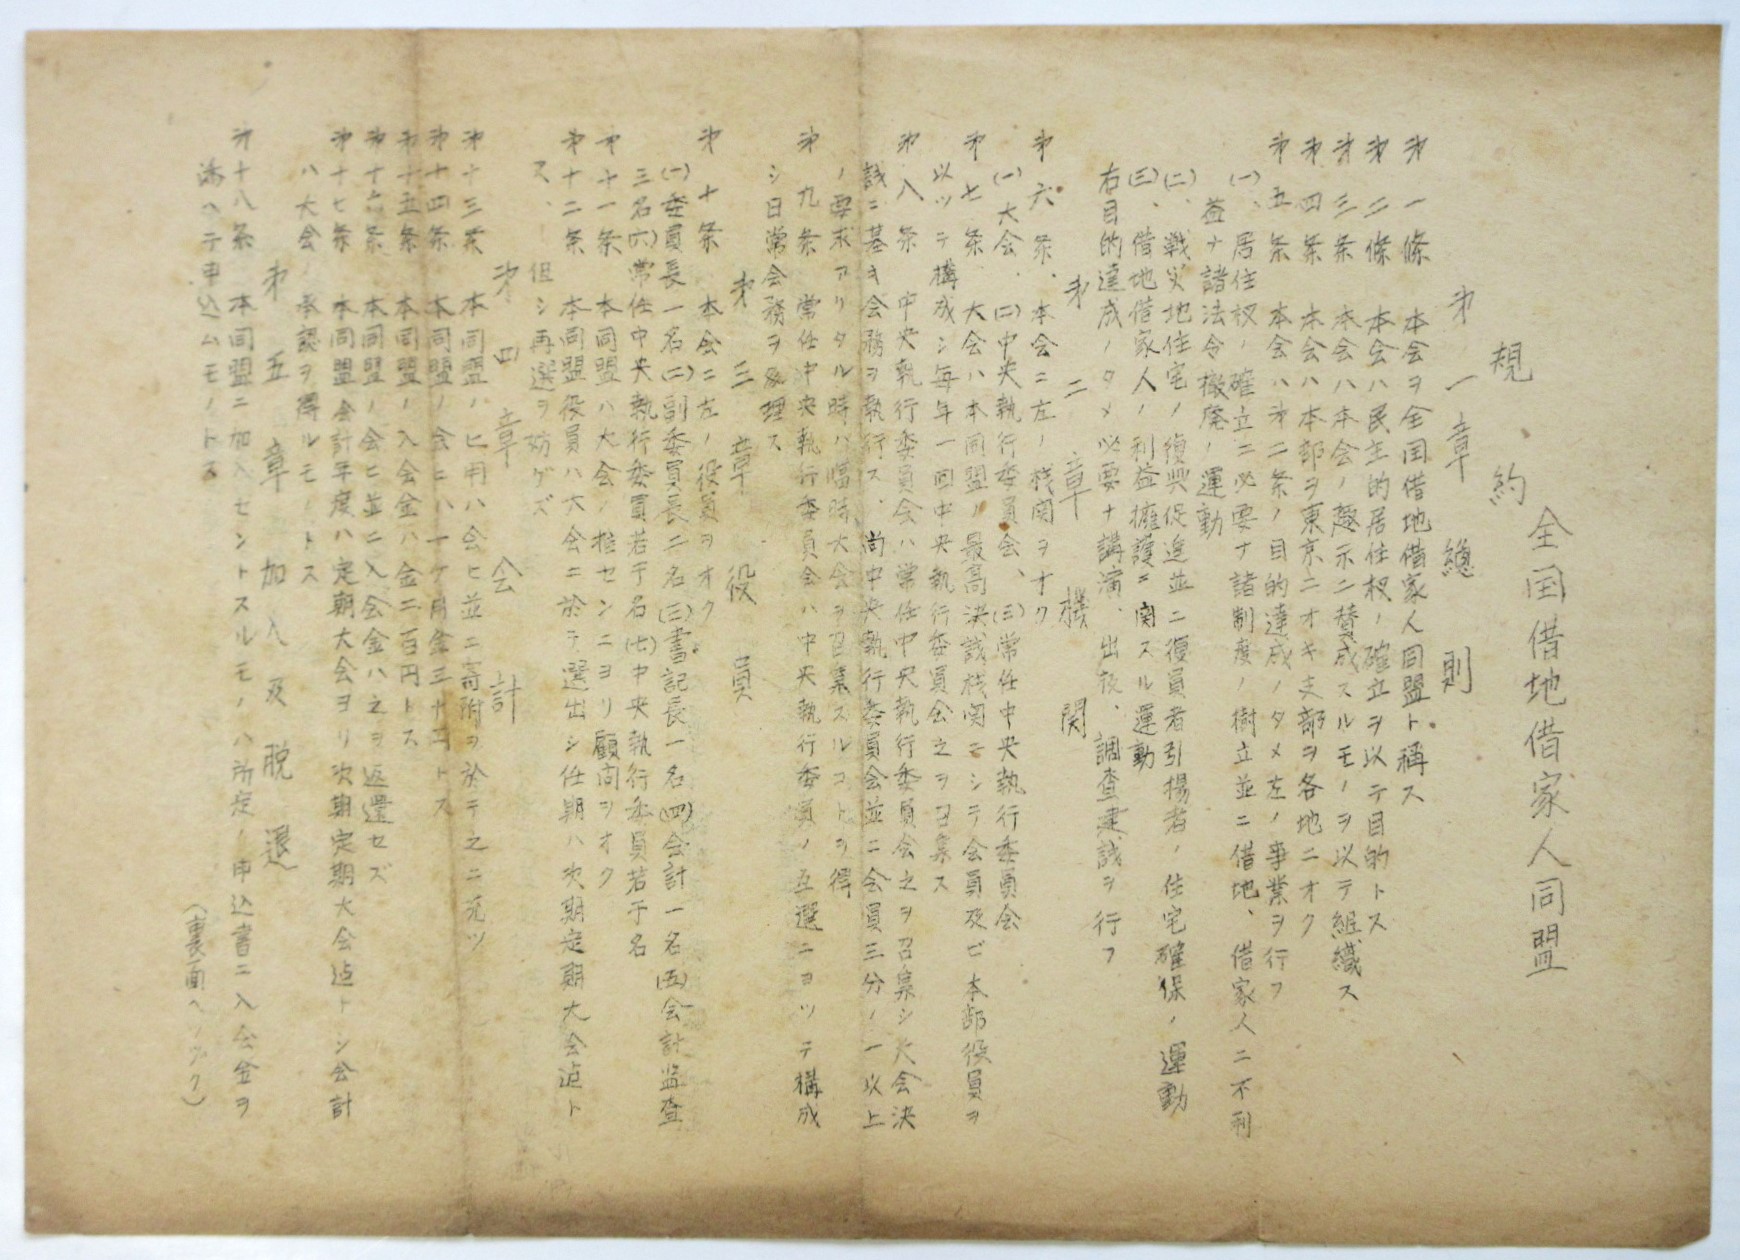 全国借地借家人同盟
規約
第一章 總則
第一條 本会ヲ全国借地借家人同盟ト稱ス
第二條 本会ハ民主的居住权ノ確立ヲ以テ目的トス
第三条 本会ハ本会ノ趣示ニ賛成スルモノヲ以テ組織ス
第四条 本会ハ本部ヲ東京ニオキ支部ヲ各地ニオク
第五条 本会ハ第二条ノ目的達成ノタメ左ノ事業ヲ行フ
(一)、居住权ノ確立ニ必要ナ諸制度ノ樹立並ニ借地、借家人ニ不利
益ナ諸法令撤廃ノ運動
(二)、戦災地住宅ノ復興促進並ニ復員者引揚者ノ住宅確保ノ運動
(三)、借地借家人ノ利益擁護ニ関スル運動
右目的達成ノタメ必要ナ講演、出版、調査建議ヲ行フ
第二章 機関
第六条、本会ニ左ノ栈関ヲオク
(一)大会、(二)中央執行委員会、(三)常任中央執行委員会
第七条、大会ハ本同盟ノ最高決議栈関ニシテ会員及ビ本部役員ヲ
以ッテ構成シ毎年一回中央執行委員会之ヲ召集ス
第八条 中央執行委員会ハ常任中央執行委員会之ヲ召集シ大会決
議ニ基キ会務ヲ執行ス、尚中央執行委員会並ニ会員三分ノ一以上
ノ要求アリタル時ハ臨時大会ヲ召集スルコトヲ得
第九条 常任中央執行委員会ハ中央執行委員ノ互選ニヨッテ構成
シ日常会務ヲ処理ス
第三章 役員
第十条 本会ニ左ノ役員ヲオク
(一)委員長一名(二)副委員長二名(三)書記長一名(四)会計一名(五)会計監査
三名(六)常任中央執行委員若干名(七)中央執行委員若干名
第十一条 本同盟ハ大会ノ推センニヨリ顧問ヲオク
第十二条 本同盟役員ハ大会ニ於テ選出シ任期ハ次期定期大会迠ト
ス、但シ再選ヲ妨ゲズ
第四章 会計
第十三条 本同盟ノヒ用ハ会ヒ並ニ寄附ヲ於テ之ニ充ツ
第十四条 本同盟ノ会ヒハ一ケ月金三十二トス
第十五条 本同盟ノ入会金ハ金二百円トス
第十六条 本同盟ノ会ヒ並ニ入会金ハ之ヲ返還セズ
第十七条 本同盟会計年度ハ定期大会ヨリ次期定期大会迠トシ会計
ハ大会ノ承認ヲ得ルモノトス
第五章 加入及脱退
第十八条 本同盟ニ加入セントスルモノハ所定ノ申込書ニ入会金ヲ
添ヘテ申込ムモノトス
(裏面ヘツヅク)